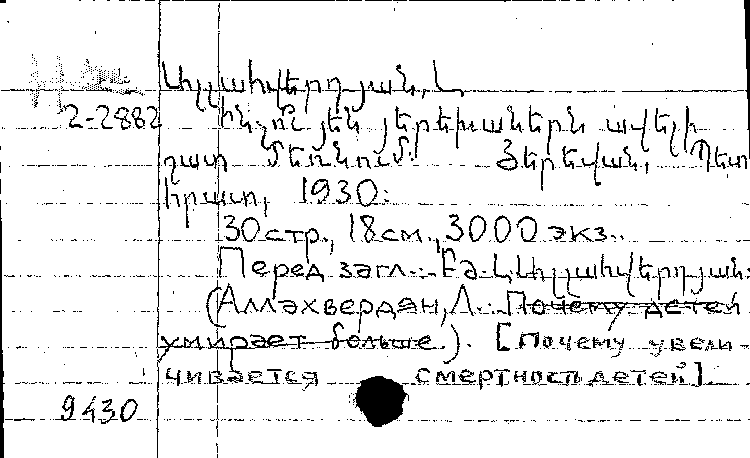 Ալլահվերդյան, Լ.
2-2882 Ինչո՞ւ յեն յերեխաներն ավելի
շատ մեռնում. Յերեվան, Պետ
հրատ, 1930.
30 стр., 18 см., 3000 экз..
Перед загл.: Լ. Ալլահվերդյան.
(Аллахвердян, Л. Почему детей
умирает больше.). [Почему увели-
чивается смертность детей].
9430